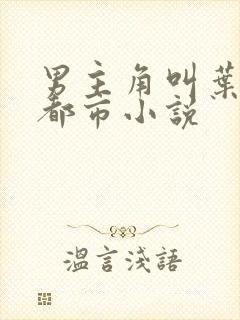 男主角叫葉
都市小說
溫言淺語